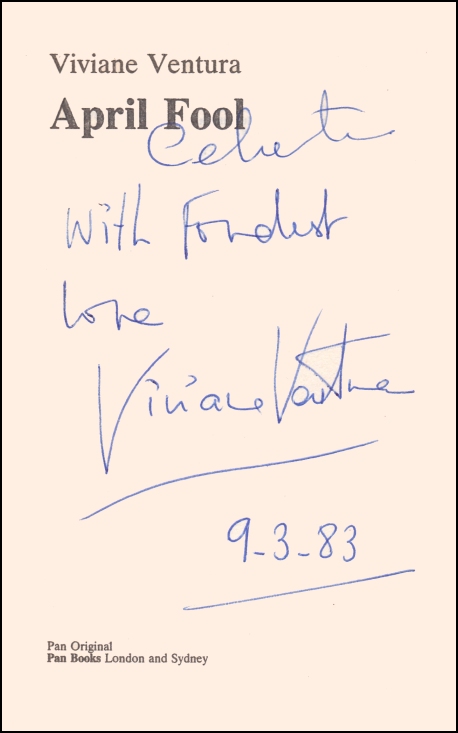 Viviane Ventura
April Fool
With Fondest
love
Viviane Ventura
9-3-83
Pan Original
Pan Books London and Sydney